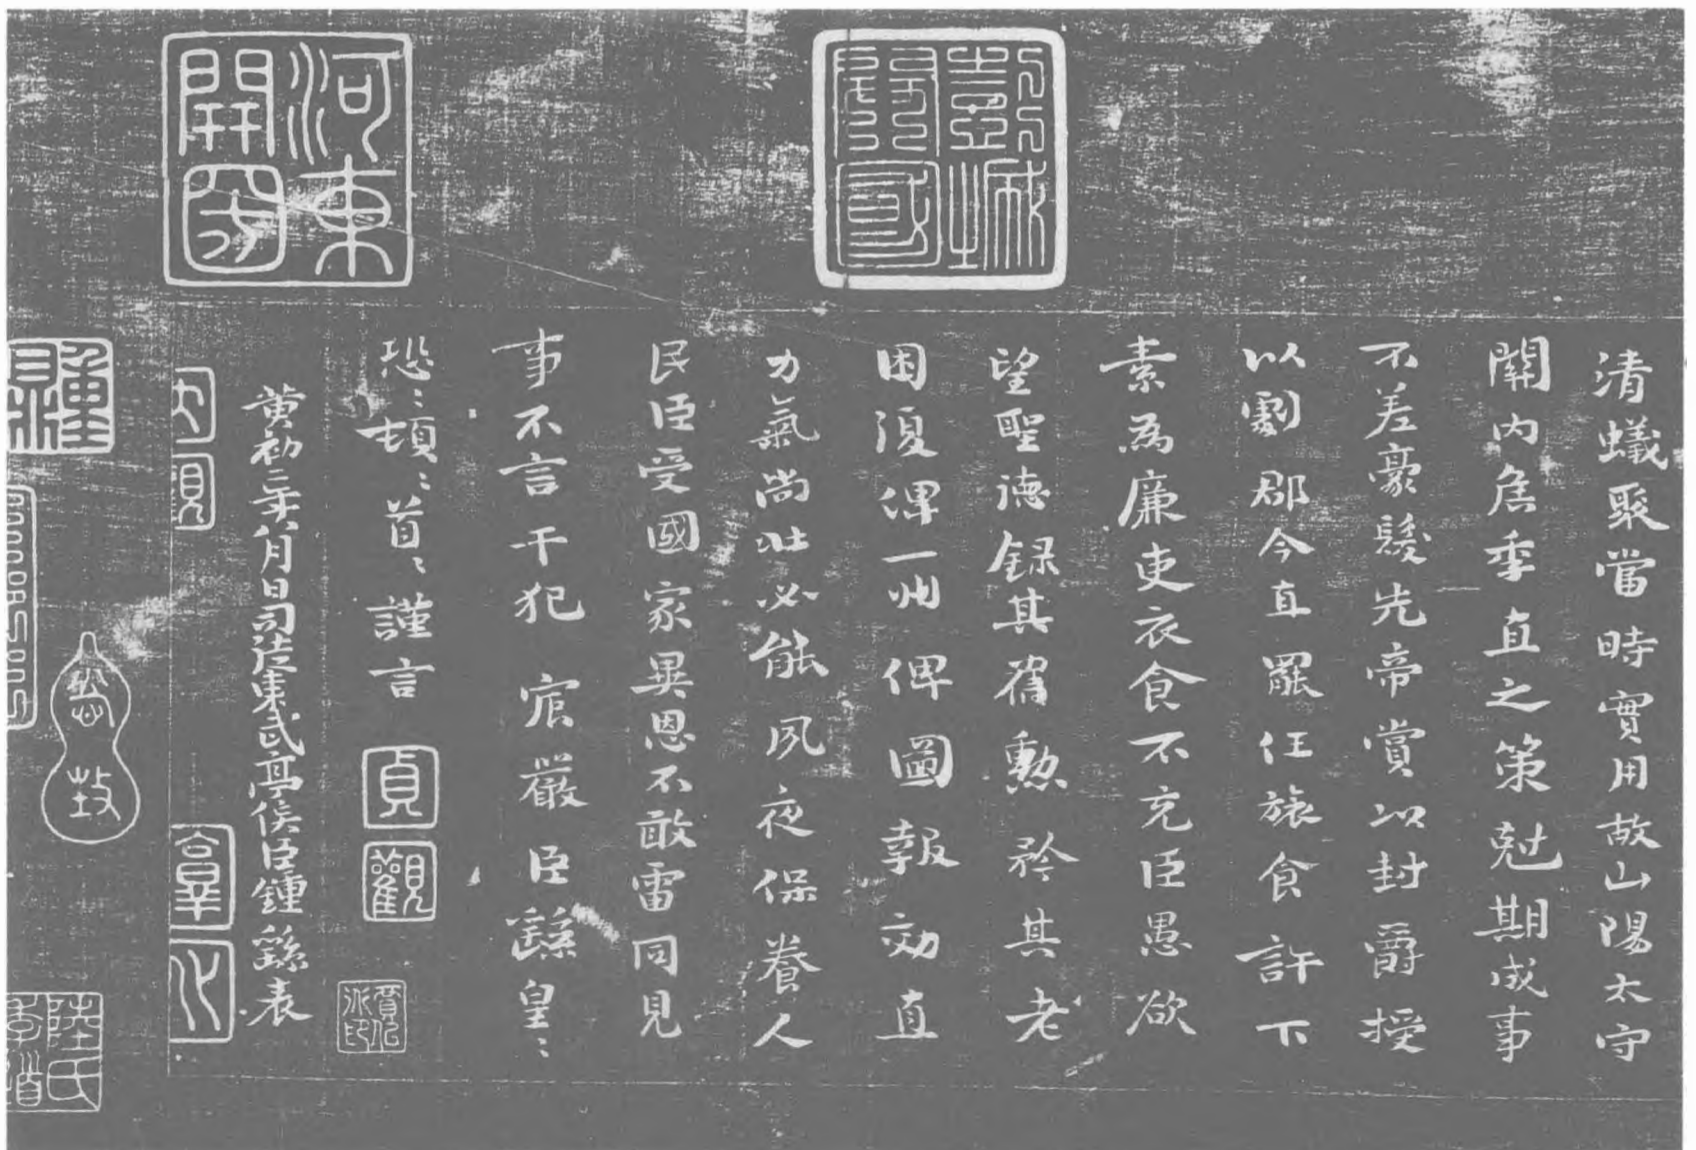 清蟻聚當時實用故山陽太守
關內侯季直之策尅期成事
不差豪髮先帝賞以封爵授
以劇郡今直罷任旅食許下
素為廉吏衣食不充臣愚欲
望聖德錄其舊勳矜其老
困復俾一州俾圖報効直
力氣尚壯必能夙夜保養人
民臣受國家異恩不敢雷同見
事不言干犯宸嚴臣繇皇〻
恐〻頓〻首〻謹言
黃初二年八月日司徒東武亭侯臣鍾繇表
彭城開國
河東開國
貞觀
陸氏